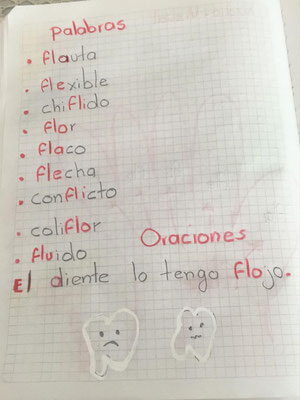 Palabras
. flauta
. flexible
. chiflido
. flor
. flaco
. flecha
. conflicto
. coliflor
. fluido
Oraciones
El diente lo tengo flojo.